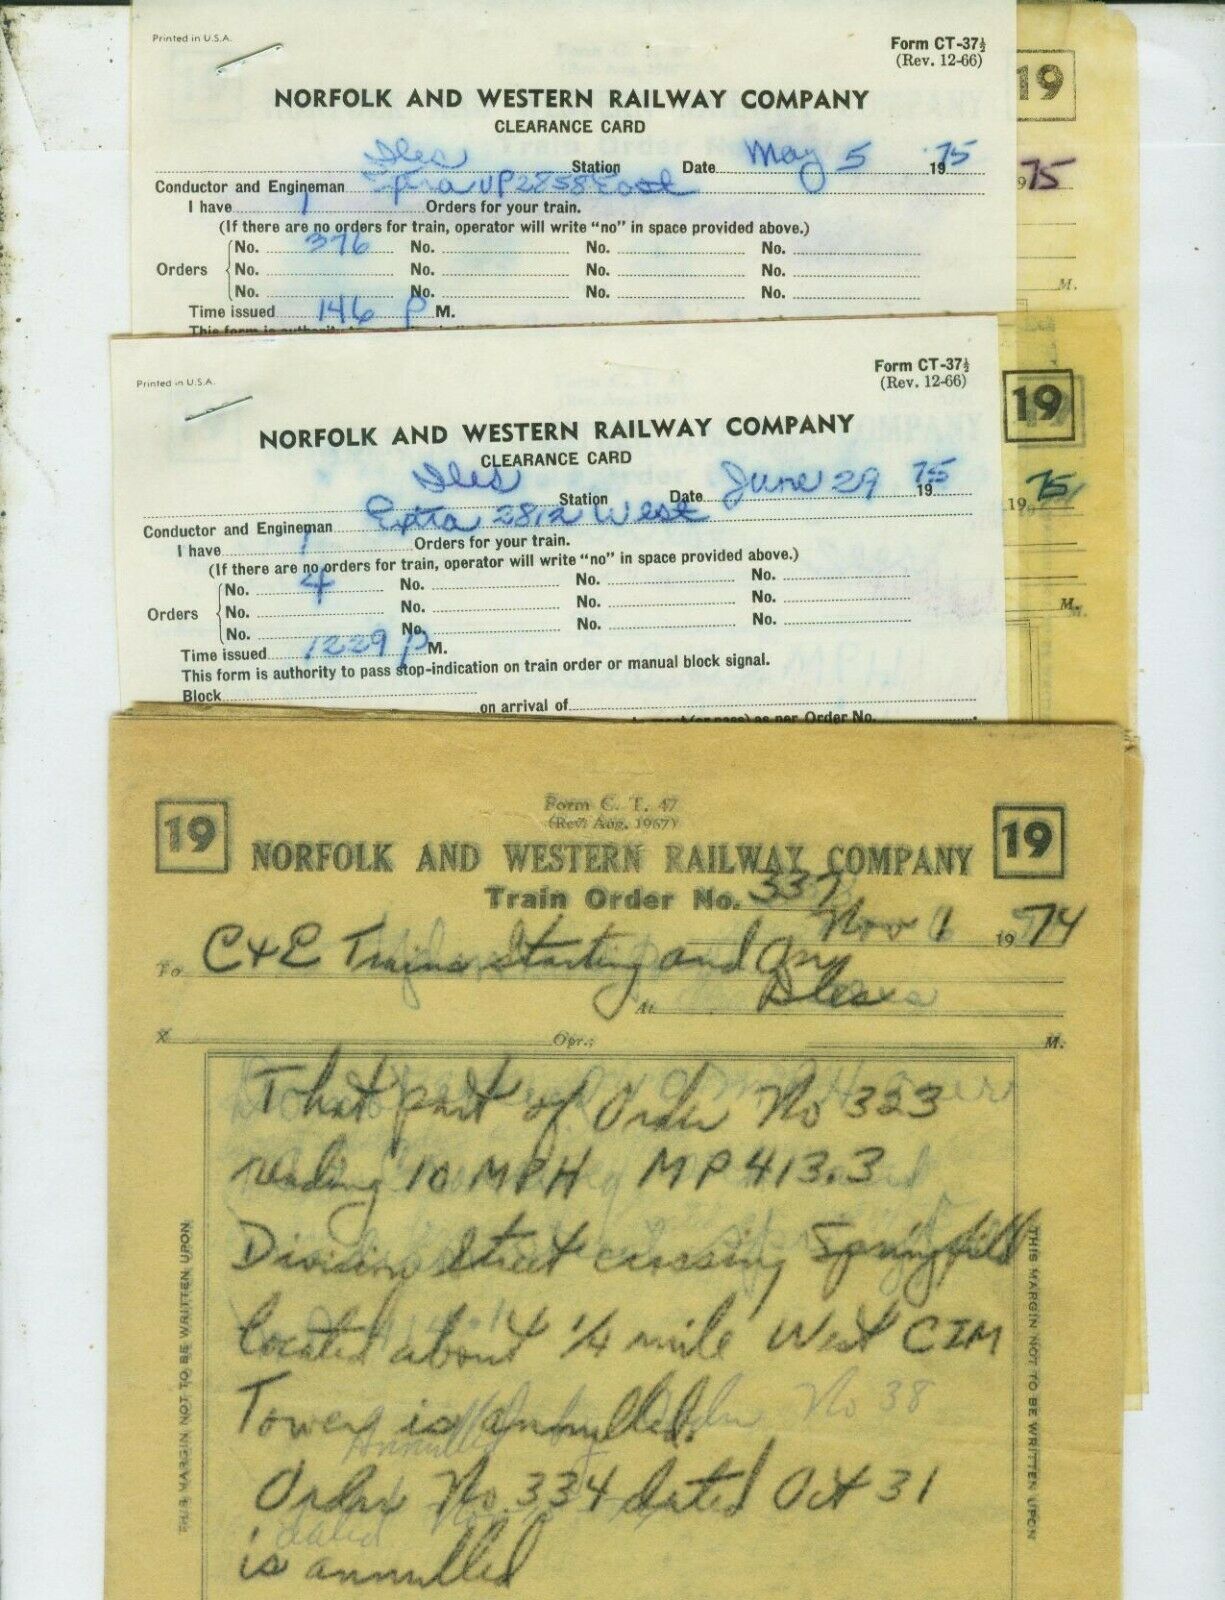 Printed in U.S.A.
Form CT-37½
(Rev. 12-66)
19
NORFOLK AND WESTERN RAILWAY COMPANY
CLEARANCE CARD
Iles Station Date May 5 1975
1975
Conductor and Engineman Extra UP 2858 East
I have 1 Orders for your train.
(If there are no orders for train, operator will write "no" in space provided above.)
Orders No. 376 No. No. No.
No. No. No. No.
No. No. No. No.
Time issued 146 P M.
M.
This form is authority
Printed in U.S.A.
Form CT-37½
(Rev. 12-66)
19
NORFOLK AND WESTERN RAILWAY COMPANY
CLEARANCE CARD
Iles Station Date June 29 1975
1975
Conductor and Engineman Extra 2812 West
I have 1 Orders for your train.
(If there are no orders for train, operator will write "no" in space provided above.)
Orders No. 4 No. No. No.
No. No. No. No.
No. No. No. No.
Time issued 1229 P M.
M.
This form is authority to pass stop-indication on train order or manual block signal.
Block
on arrival of
(or pass) as per Order No.
Form C. T. 47
(Rev. Aug. 1967)
19 19
NORFOLK AND WESTERN RAILWAY COMPANY
Train Order No. 337
Nov 1 1974
To C+E Trains Starting and Any
At Iles
X Opr.; M.
That part of Order No 323
reading 10 MPH MP 413.3
Division Street crossing Springfield
located about 1/4 mile West CIM
Tower is annulled.
Order No. 334 dated Oct 31
is annulled
THIS MARGIN NOT TO BE WRITTEN UPON
THIS MARGIN NOT TO BE WRITTEN UPON